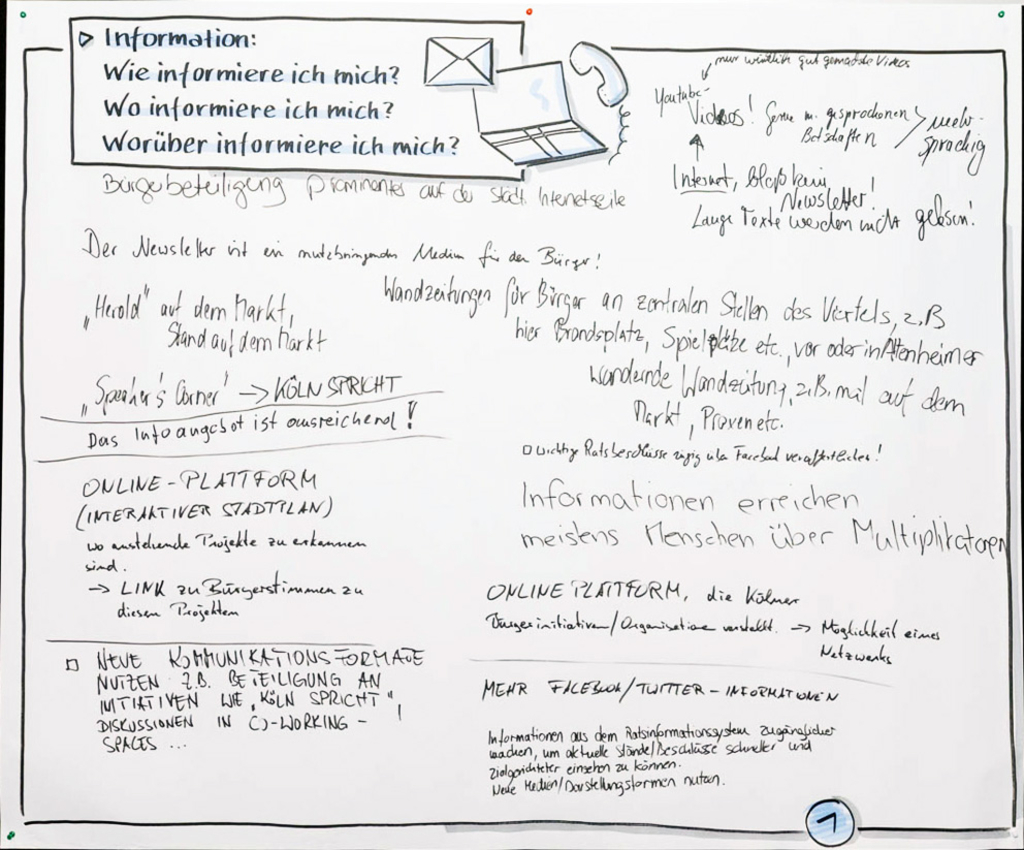 ▷ Information:
Wie informiere ich mich?
Wo informiere ich mich?
Worüber informiere ich mich?
nur wirklich gut gemachte Videos
Youtube-
Videos! Gerne m. gesprochenen
Botschaften
mehr-
sprachig
Internet, bloß kein
Newsletter!
Lange Texte werden nicht gelesen!
Bürgerbeteiligung prominenter auf der städt. Internetseite
Der Newsletter ist ein nutzbringendes Medium für den Bürger!
„Herold" auf dem Markt,
Stand auf dem Markt
„Speaker's Corner" → KÖLN SPRICHT
Das Infoangebot ist ausreichend!
Wandzeitungen für Bürger an zentralen Stellen des Viertels, z.B
hier Brandsplatz, Spielplätze etc., vor oder in Altenheimen
wandernde Wandzeitung, z.B. mal auf dem
Markt, etc.
□ wichtige Ratsbeschlüsse zügig über Facebook veröffentlichen!
Informationen erreichen
meistens Menschen über Multiplikatoren
ONLINE-PLATTFORM
(INTERAKTIVER STADTPLAN)
wo anstehende Projekte zu erkennen
sind.
→ LINK zu Bürgerstimmen zu
diesen Projekten
ONLINE PLATTFORM, die Kölner
Bürgerinitiativen/Organisationen vorstellt. → Möglichkeit eines
Netzwerks
□ NEUE KOMMUNIKATIONSFORMATE
NUTZEN Z.B. BETEILIGUNG AN
INITIATIVEN WIE „KÖLN SPRICHT",
DISKUSSIONEN IN CO-WORKING-
SPACES ...
MEHR FACEBOOK/TWITTER-INFORMATIONEN
Informationen aus dem Ratsinformationssystem zugänglicher
machen, um aktuelle Stände/Beschlüsse schneller und
zielgerichteter einsehen zu können.
Neue Medien/Darstellungsformen nutzen.
1